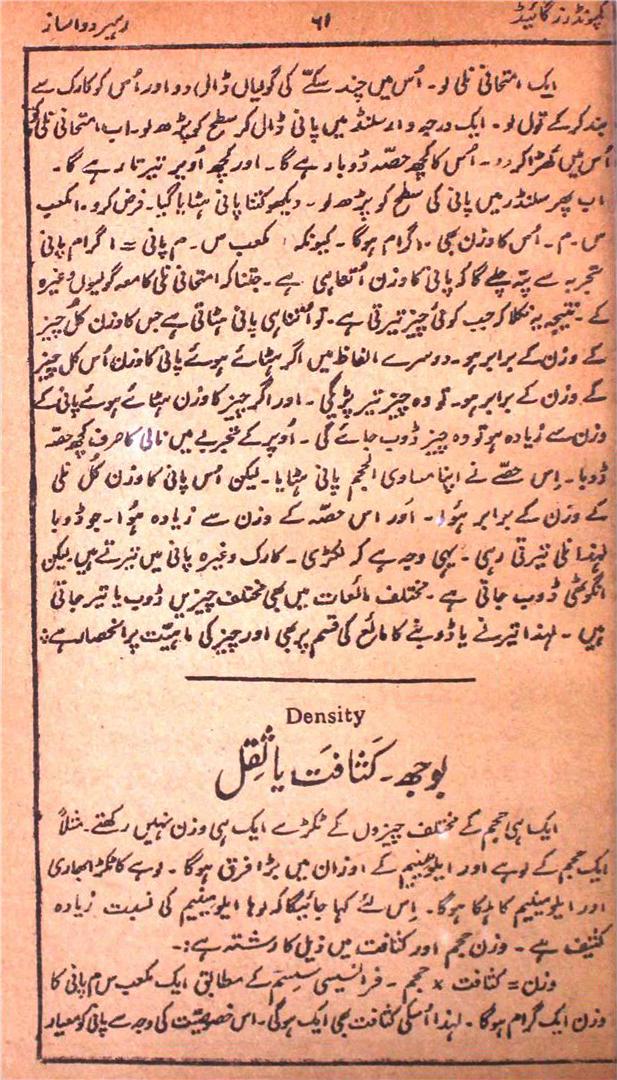 کمپونڈرز گائیڈ ۶۱ رہبر دواساز
ایک امتحانی نلی لو۔ اُس میں چند سکّے کی گولیاں ڈال دو اور اُس کو کارک سے
بند کر کے تول لو۔ ایک درجہ وار سلنڈر میں پانی ڈال کر سطح کو پڑھ لو۔ اب امتحانی نلی کو
اُس میں کھڑا کر دو۔ اُس کا کچھ حصّہ ڈوبا رہے گا۔ اور کچھ اُوپر تیرتا رہے گا۔
اب پھر سلنڈر میں پانی کی سطح کو پڑھ لو۔ دیکھو کتنا پانی ہٹایا گیا۔ فرض کرو۔ ۱۰ مکعب
س۔م۔ اُس کا وزن بھی ۱۰ گرام ہوگا۔ کیونکہ ۱ مکعب س۔م پانی = ۱ گرام پانی
تجربہ سے پتہ چلے گا کہ پانی کا وزن اُتنا ہی ہے۔ جتنا کہ امتحانی نلی کا معہ گولیوں وغیرہ
کے۔ نتیجہ یہ نکلا کہ جب کوئی چیز تیرتی ہے۔ تو اُتنا ہی پانی ہٹاتی ہے جس کا وزن کل چیز
کے وزن کے برابر ہو۔ دوسرے الفاظ میں اگر ہٹائے ہوئے پانی کا وزن اُس کل چیز
کے وزن کے برابر ہو۔ تو وہ چیز تیر پڑیگی۔ اور اگر چیز کا وزن ہٹائے ہوئے پانی کے
وزن سے زیادہ ہو تو وہ چیز ڈوب جائے گی۔ اُوپر کے تجربے میں نالی کا صرف کچھ حصّہ
ڈوبا۔ اِس حصّے نے اپنا مساوی الحجم پانی ہٹایا۔ لیکن اُس پانی کا وزن کُل نلی
کے وزن کے برابر ہُوا۔ اَور اس حصّہ کے وزن سے زیادہ ہُوا۔ جو ڈوبا
لہٰذا نلی تیرتی رہی۔ یہی وجہ ہے کہ لکڑی۔ کارک وغیرہ پانی میں تیرتے ہیں۔ لیکن
انگوٹھی ڈوب جاتی ہے۔ مختلف مائعات میں بھی مختلف چیزیں ڈوب یا تیر جاتی
ہیں۔ لہذا تیرنے یا ڈوبنے کا مائع کی قسم پر بھی اور چیز کی ماہیّت پر انحصار ہے:
Density
بوجھ۔ کَثافَت یا ثِقل
ایک ہی حجم کے مختلف چیزوں کے ٹکڑے ایک ہی وزن نہیں رکھتے۔ مثلاً
ایک حجم کے لوہے اور ایلومینیم کے اوزان میں بڑا فرق ہوگا۔ لوہے کا ٹکڑا بھاری
اور ایلومینیم کا ہلکا ہوگا۔ اِس لئے کہا جائیگا کہ لوہا ایلومینیم کی نسبت زیادہ
کثیف ہے۔ وزن حجم اور کثافت میں ذیل کا رشتہ ہے:۔
وزن = کثافت × حجم ۔ فرانسیسی سسٹم کے مطابق ایک مکعب س م پانی کا
وزن ایک گرام ہوگا۔ لہذا اُسکی کثافت بھی ایک ہوگی۔ اس خصوصیّت کی وجہ سے پانی کو معیار